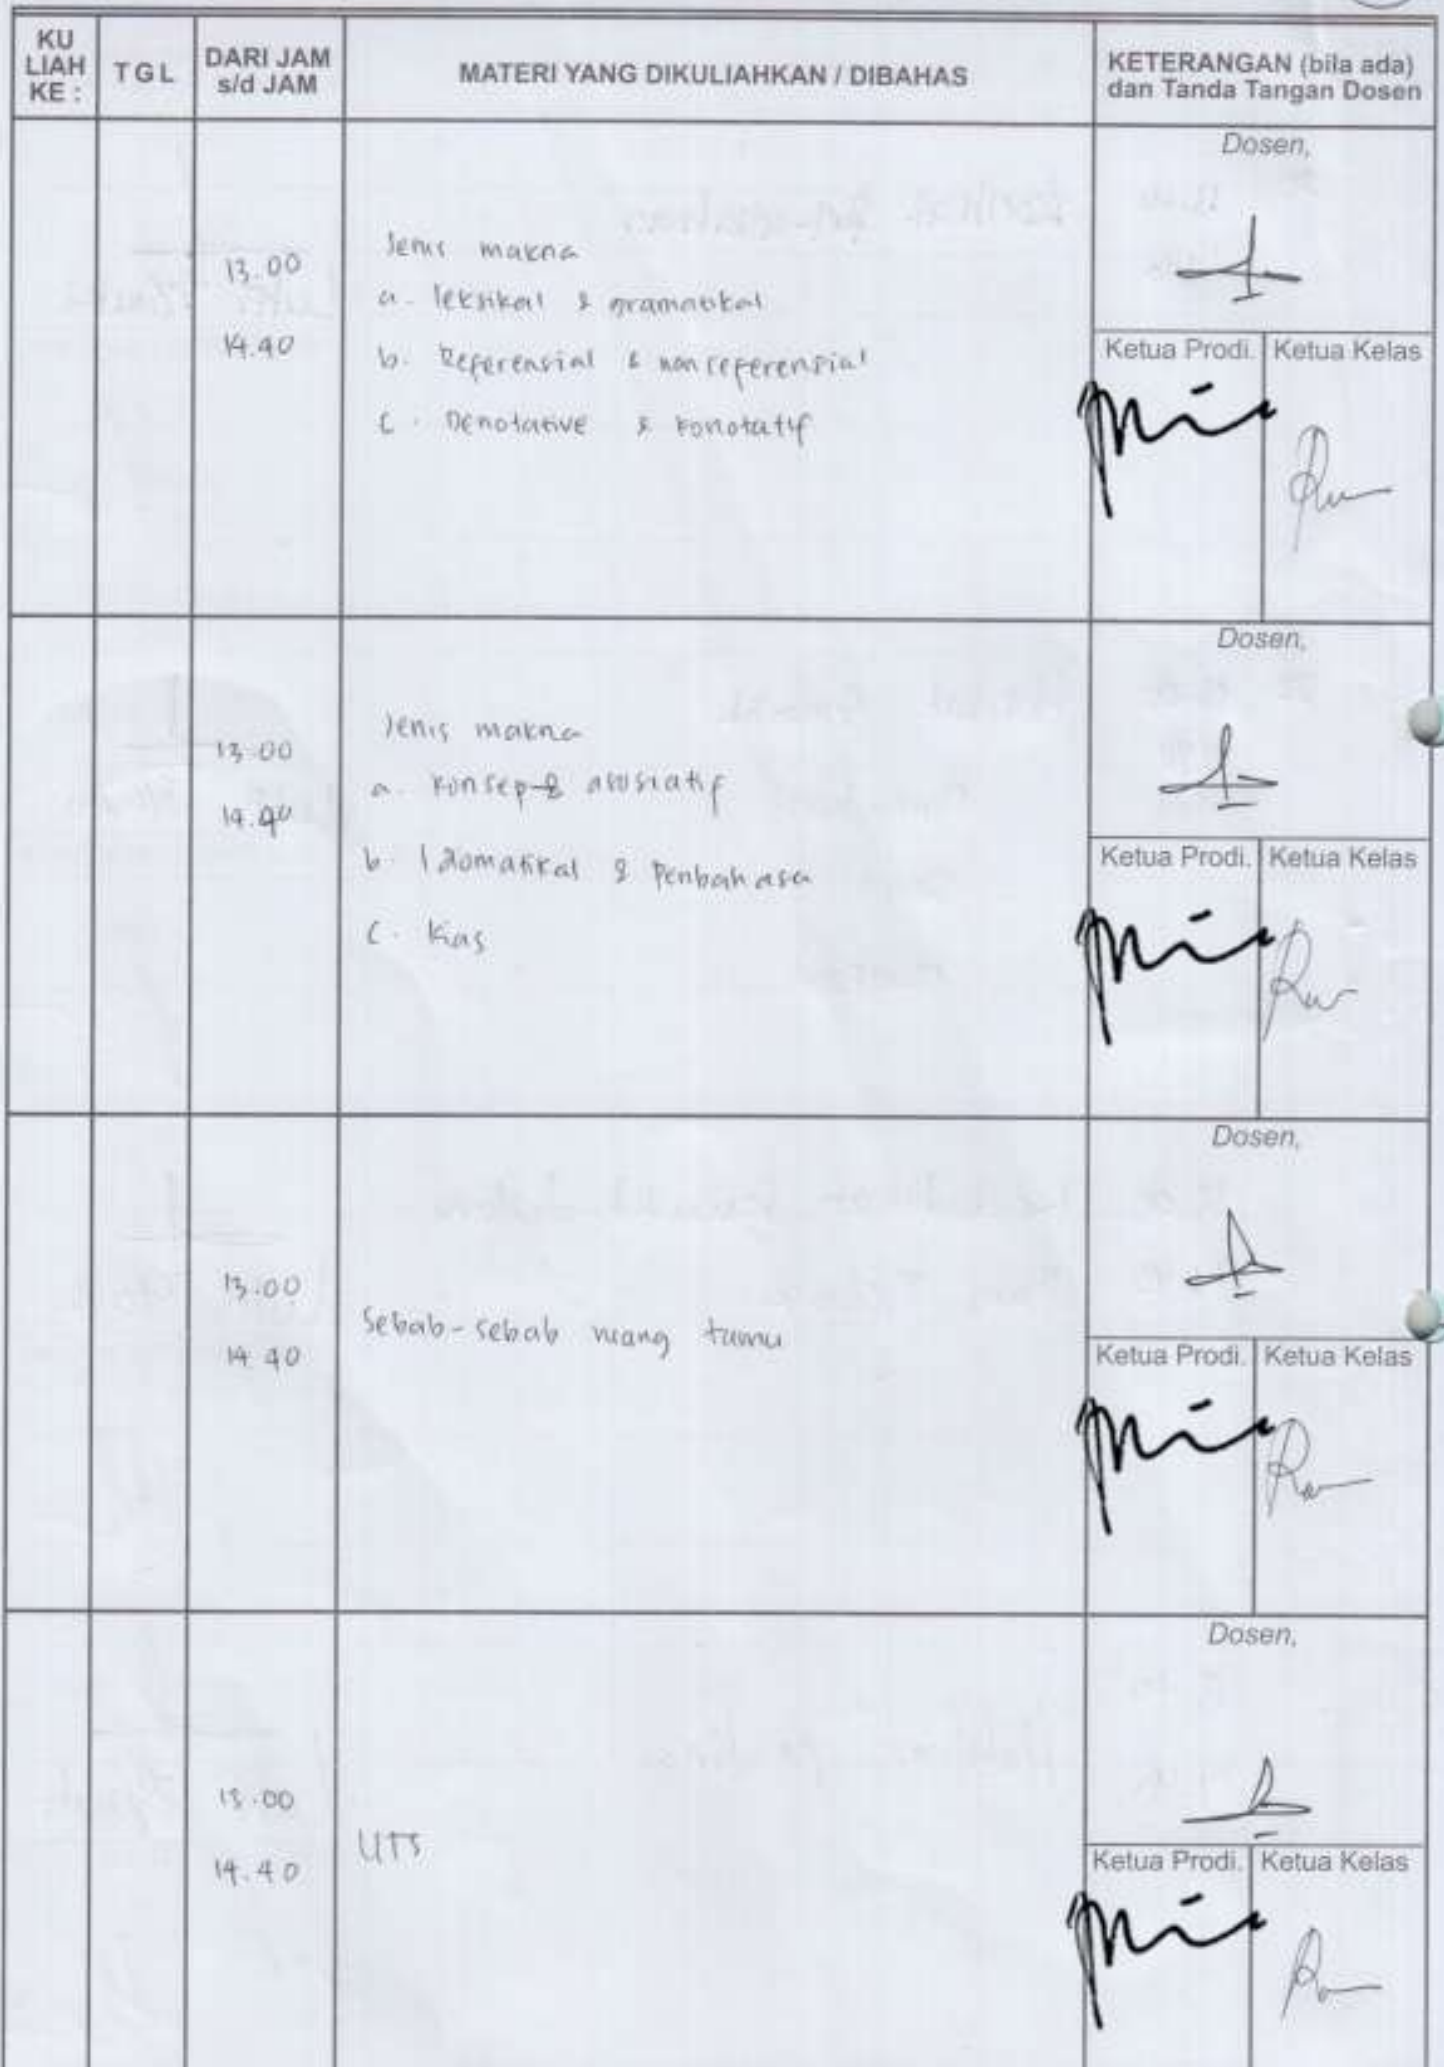 KU LIAH KE :
TGL
DARI JAM s/d JAM
MATERI YANG DIKULIAHKAN / DIBAHAS
KETERANGAN (bila ada) dan Tanda Tangan Dosen
Dosen,
13.00
14.40
Jenis makna
a. leksikal & gramatikal
b. Referensial & nonreferensial
c. Denotative & konotatif
Ketua Prodi.
Ketua Kelas
Dosen,
13.00
14.40
Jenis makna
a. konsep & asosiatif
b. Idiomatikal & Peribahasa
c. Kias
Ketua Prodi.
Ketua Kelas
Dosen,
13.00
14.40
Sebab-sebab
Ketua Prodi.
Ketua Kelas
Dosen,
13.00
14.40
UTS
Ketua Prodi.
Ketua Kelas